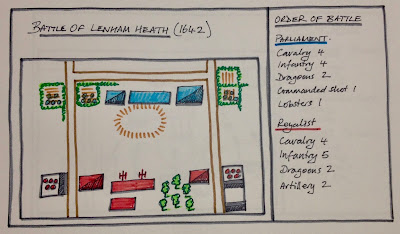 BATTLE OF LENHAM HEATH (1642)
ORDER OF BATTLE
PARLIAMENT.
Cavalry 4
Infantry 4
Dragoons 2
Commanded shot 1
Lobsters 1
Royalist
Cavalry 4
Infantry 5
Dragoons 2
Artillery 2